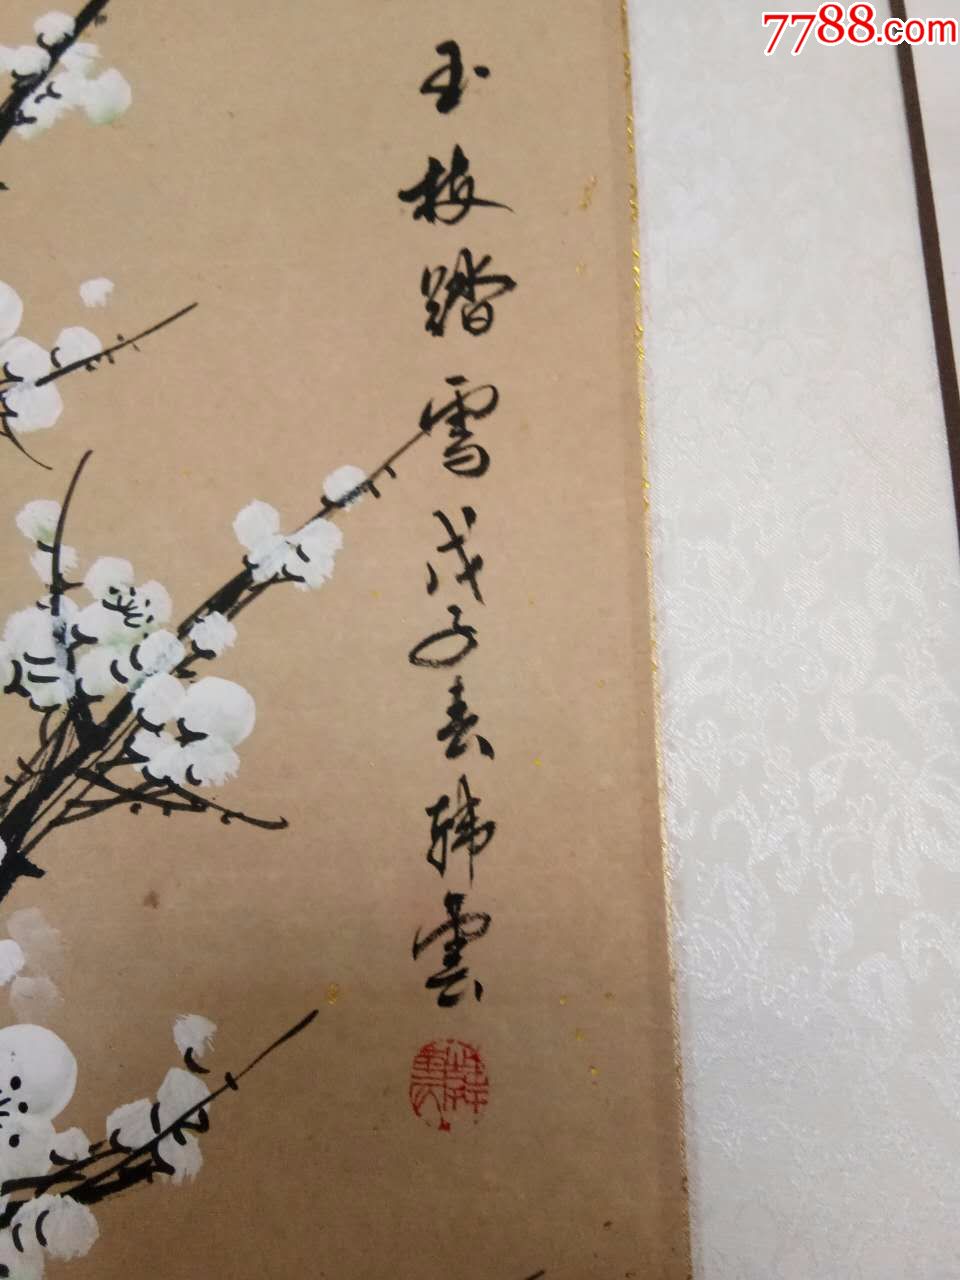 7788.com
玉枝踏雪戊子春韩雲